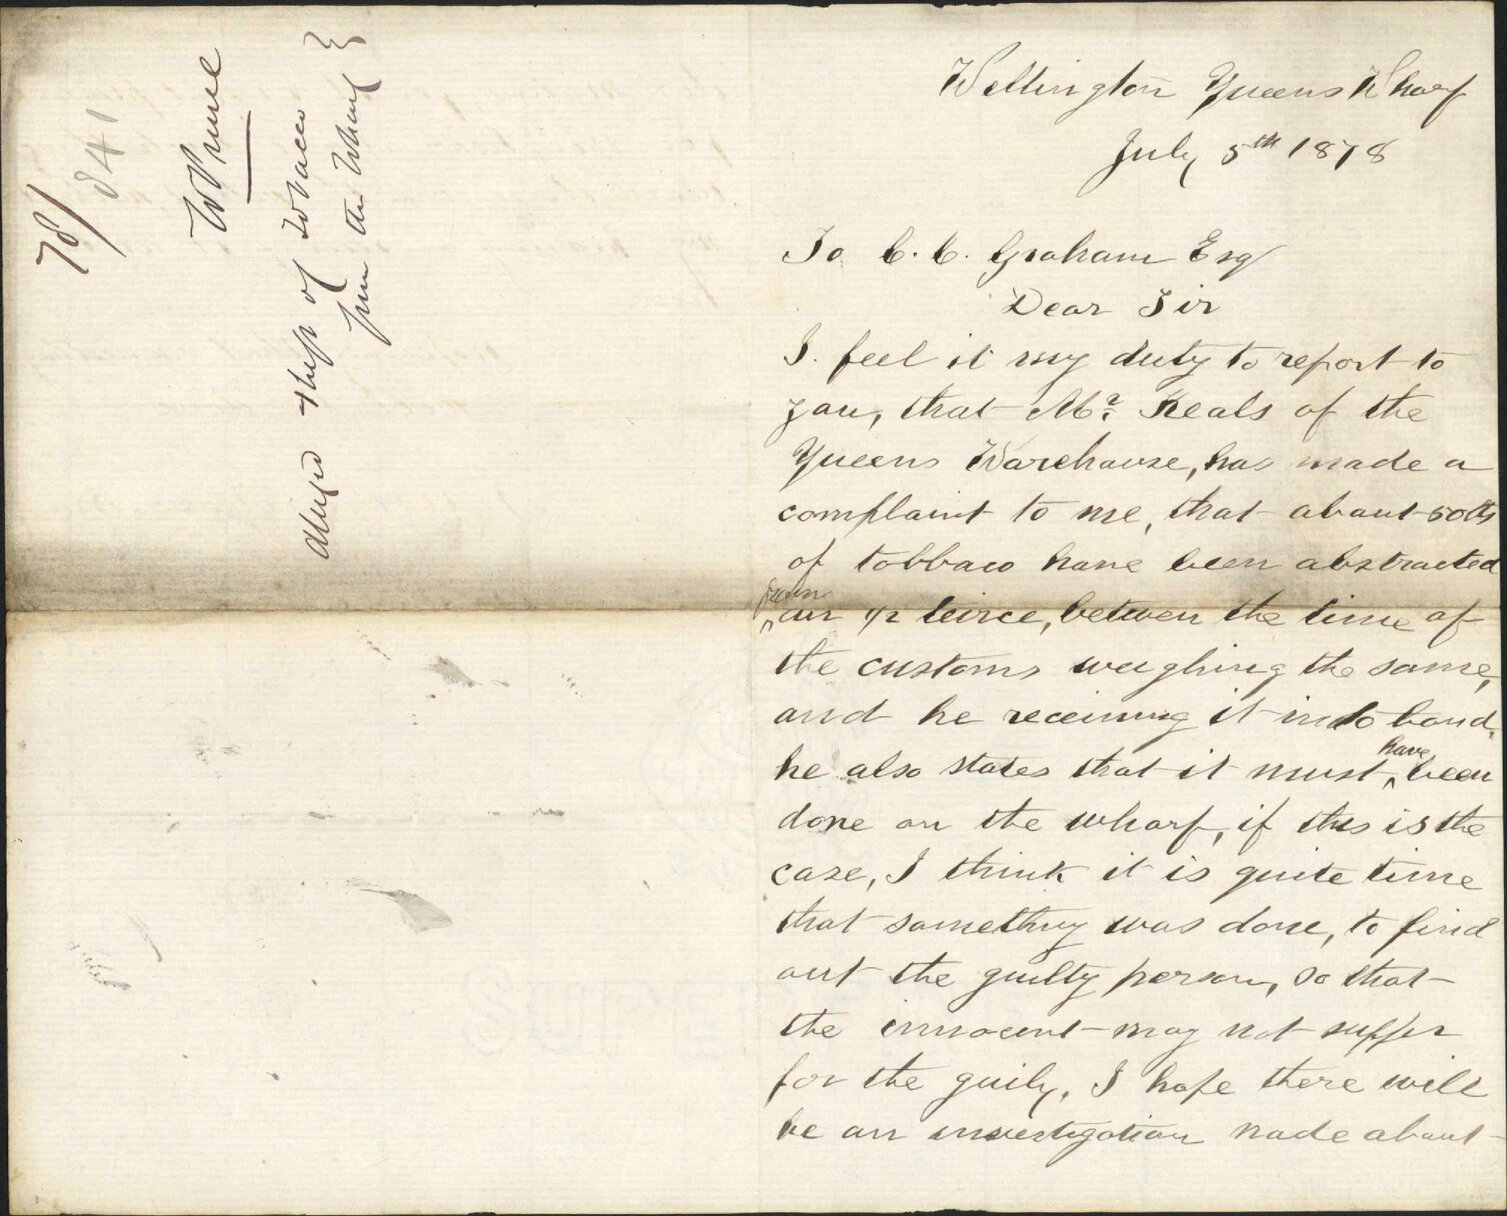 78/
841
W Prince
alleged theft of Tobacco }
from the Wharf }
Wellington Queens Wharf
July 5th 1878
To C. C. Graham Esq
Dear Sir
I. feel it my duty to report to
you, that Mr. Keals of the
Queens Warehouse, has made a
complaint to me, that about 50 lbs
of tobbaco have been abstracted
from an 1/2 teirce, between the time of
the customs weighing the same,
and he receiving it into bond,
he also states that it must have been
done on the wharf, if this is the
case, I think it is quite time
that something was done, to find
out the guilty person, so that
the innocent may not suffer
for the guily, I hope there will
be an investigation made about